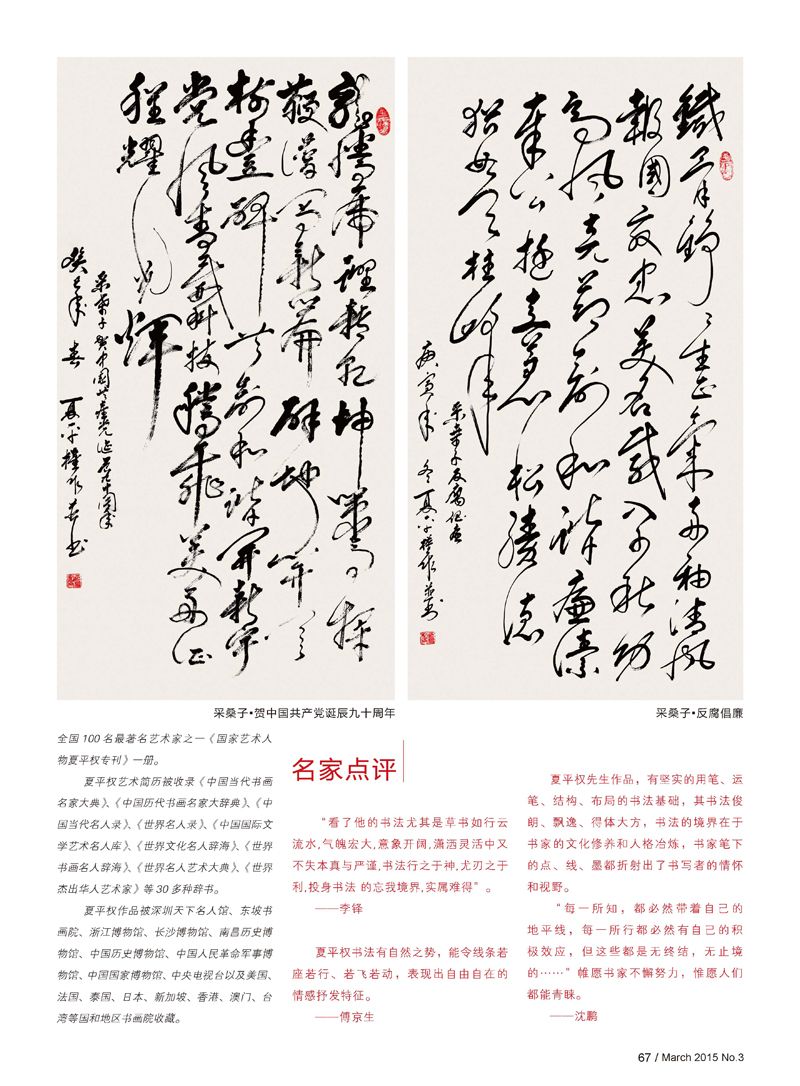 鐵骨錚錚生正氣 兩袖清風
報國效忠 美名載入千秋功
高風亮節創和諧 廉潔
奉公 挺直 松
天柱峰
采桑子反腐倡廉
庚寅年冬 夏平權作並書
乾坤
開新
黨風 科技騰飛
耀 光輝
采桑子 賀中國共產黨誕辰九十周年
癸巳年春 夏平權作並書
采桑子•贺中国共产党诞辰九十周年
采桑子•反腐倡廉
全国100名最著名艺术家之一《国家艺术人
物夏平权专刊》一册。
夏平权艺术简历被收录《中国当代书画
名家大典》、《中国历代书画名家大辞典》、《中
国当代名人录》、《世界名人录》、《中国国际文
学艺术名人库》、《世界文化名人辞海》、《世界
书画名人辞海》、《世界名人艺术大典》、《世界
杰出华人艺术家》等30多种辞书。
夏平权作品被深圳天下名人馆、东坡书
画院、浙江博物馆、长沙博物馆、南昌历史博
物馆、中国历史博物馆、中国人民革命军事博
物馆、中国国家博物馆、中央电视台以及美国、
法国、泰国、日本、新加坡、香港、澳门、台
湾等国和地区书画院收藏。
名家点评
“看了他的书法尤其是草书如行云
流水,气魄宏大,意象开阔,潇洒灵活中又
不失本真与严谨,书法行之于神,尤刃之于
利,投身书法 的忘我境界,实属难得”。
——李铎
夏平权书法有自然之势，能令线条若
座若行、若飞若动，表现出自由自在的
情感抒发特征。
——傅京生
夏平权先生作品，有坚实的用笔、运
笔、结构、布局的书法基础，其书法俊
朗、飘逸、得体大方，书法的境界在于
书家的文化修养和人格冶炼，书家笔下
的点、线、墨都折射出了书写者的情怀
和视野。
“每一所知，都必然带着自己的
地平线，每一所行都必然有自己的积
极效应，但这些都是无终结，无止境
的……”帷愿书家不懈努力，惟愿人们
都能青睐。
——沈鹏
67 / March 2015 No.3